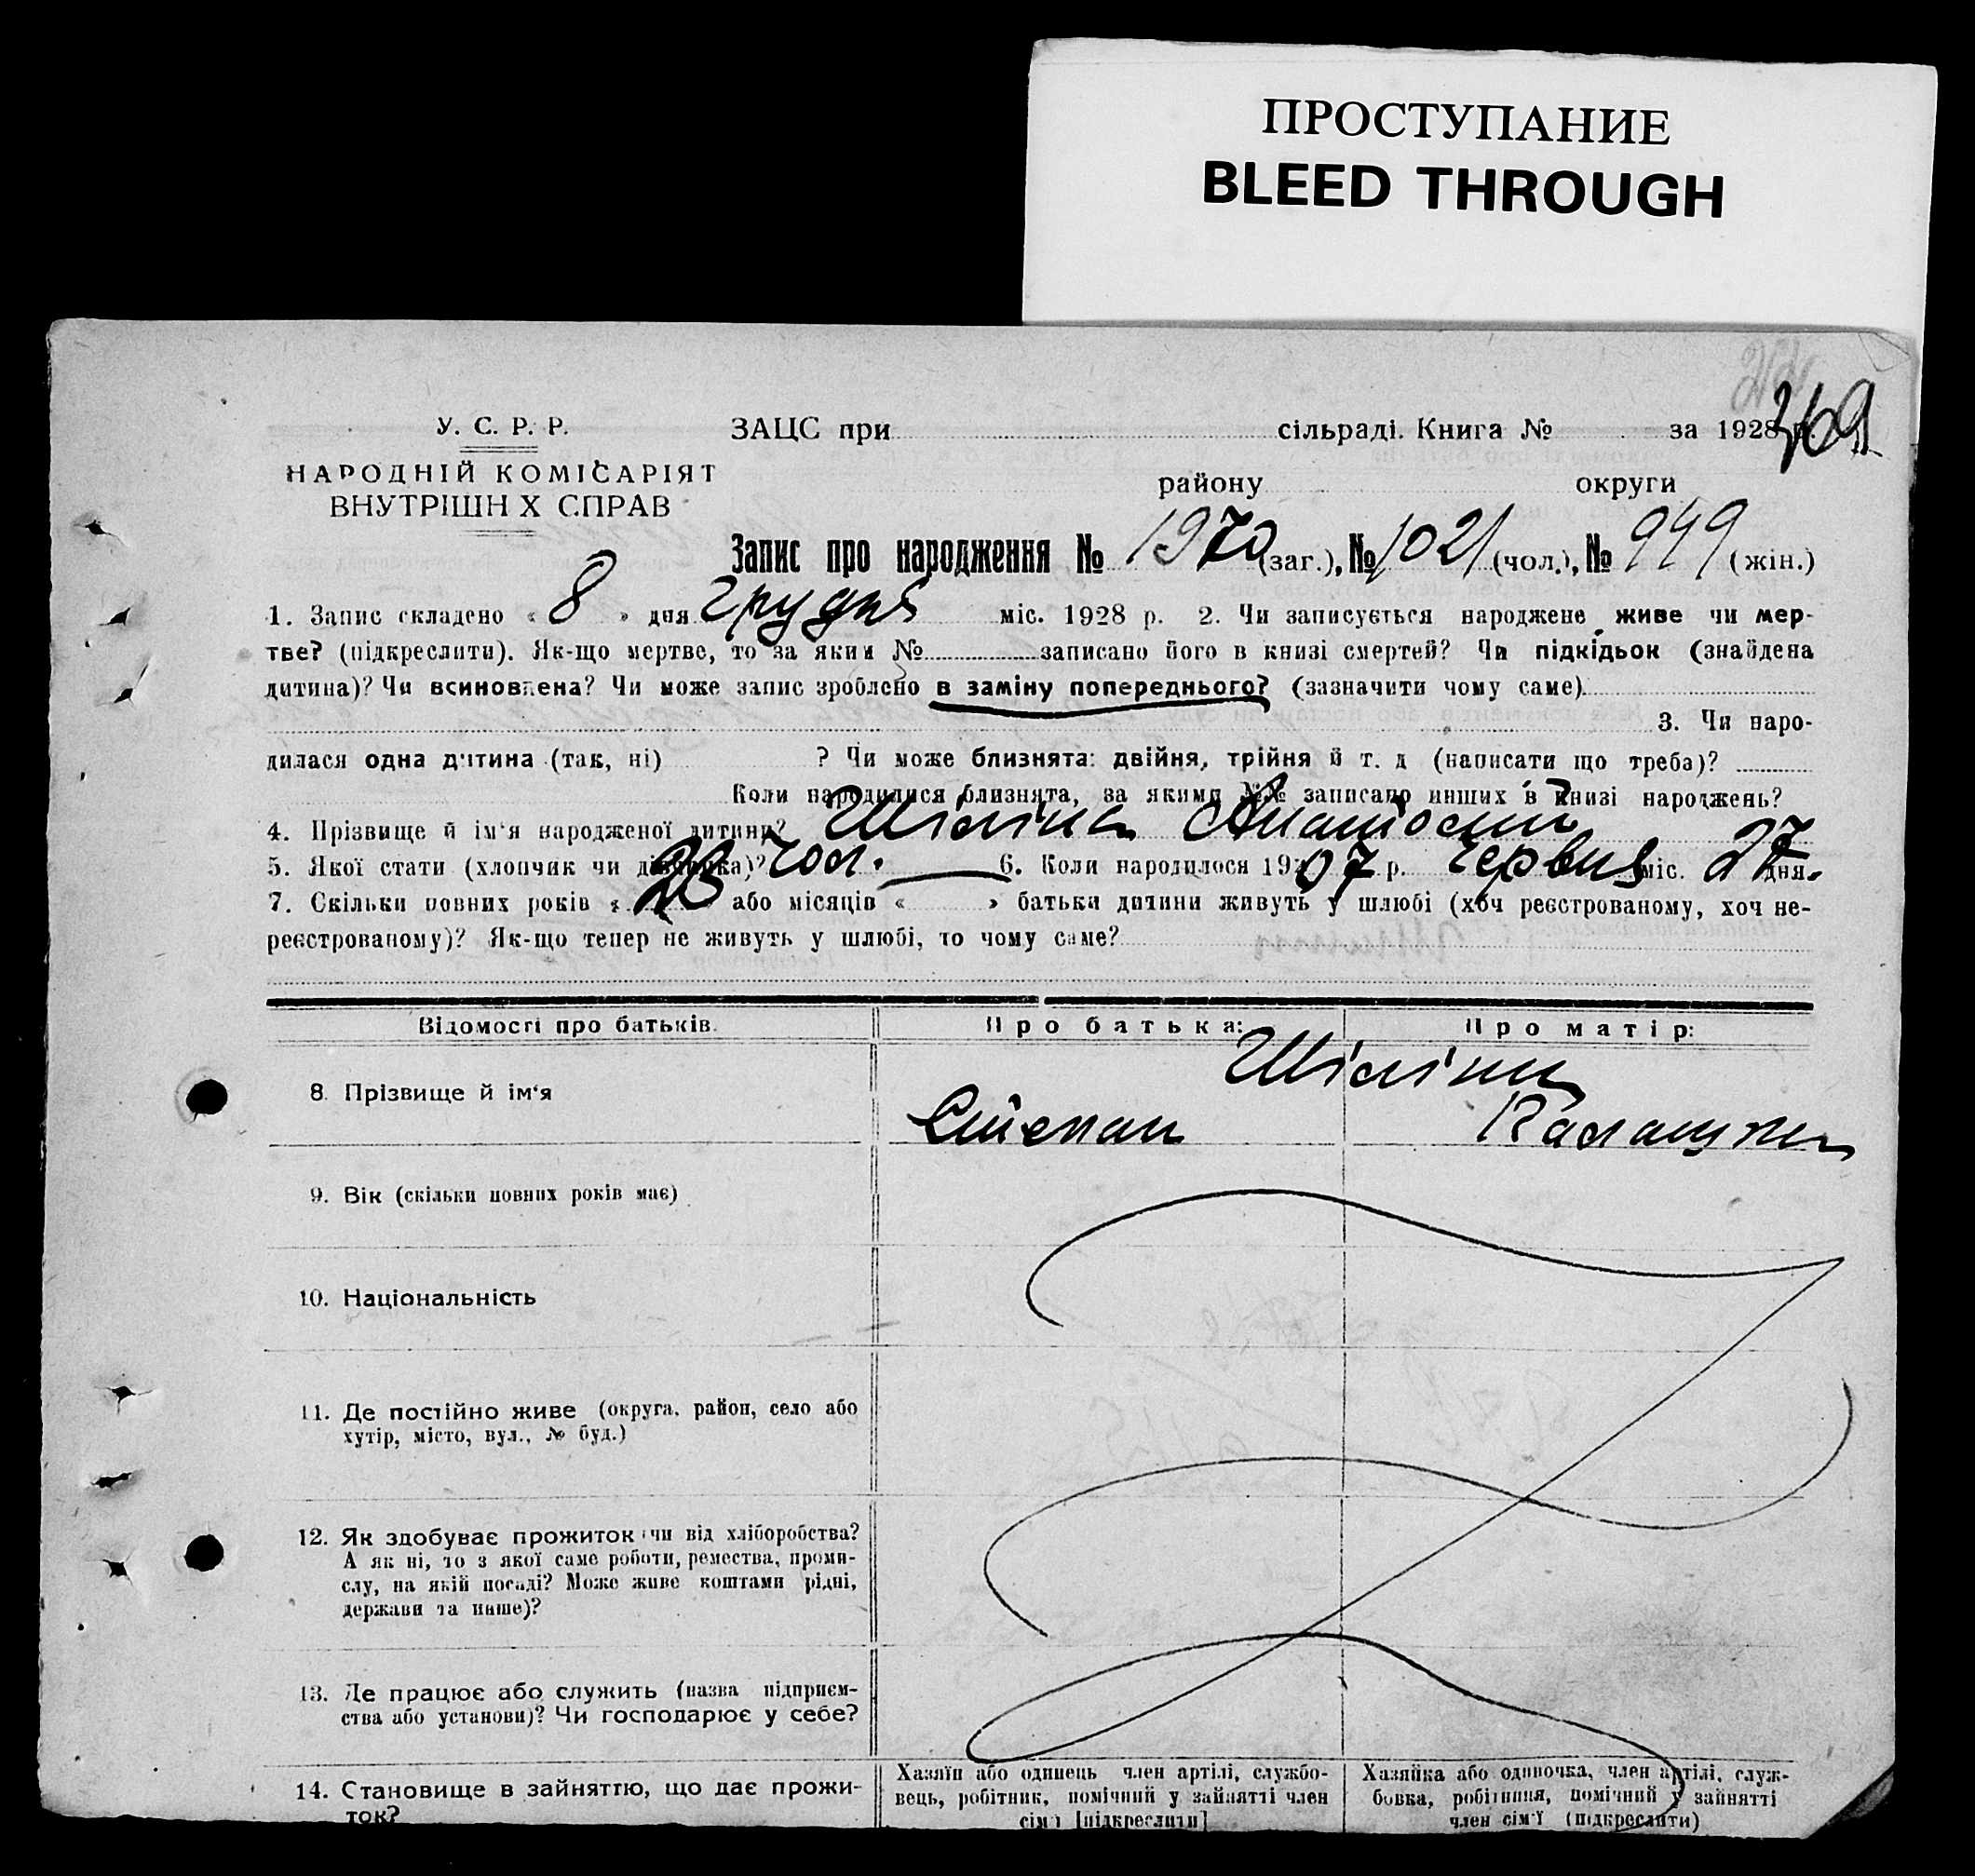 ПРОСТУПАНИЕ
BLEED THROUGH
369
У. С. Р. Р.
ЗАЦС при сільраді. Книга № за 1928 р.
НАРОДНІЙ КОМІСАРІЯТ
ВНУТРІШН Х СПРАВ
району округи
Запис про народження № 1970 (заг.), № 1021 (чол.), № 949 (жін.)
1. Запис складено « 8 » дня грудня міс. 1928 р. 2. Чи записується народжене живе чи мер-
тве? (підкреслити). Як-що мертве, то за яким № записано його в книзі смертей? Чи підкідьок (знайдена
дитина)? Чи всиновлена? Чи може запис зроблено в заміну попереднього? (зазначити чому саме)
3. Чи наро-
дилася одна дитина (так, ні) ? Чи може близнята: двійня, трійня й т. д (написати що треба)?
Коли народилися близнята, за якими №№ записано инших в книзі народжень?
4. Прізвище й ім‘я народженої дитини? Шіліна Анатолий
5. Якої стати (хлопчик чи дівчинка)? чол. 6. Коли народилося 1907 р. червня міс. 27 дня.
7. Скільки повних років « » або місяців « » батьки дитини живуть у шлюбі (хоч реєстрованому, хоч не-
реєстрованому)? Як-що тепер не живуть у шлюбі, то чому саме?
Відомості про батьків. Про батька: Про матір:
8. Прізвище й ім‘я
Шіліни
Степан
9. Вік (скільки повних років має)
10. Національність
11. Де постійно живе (округа, район, село або
хутір, місто, вул., № буд.)
12. Як здобуває прожиток (чи від хліборобства?
А як ні, то з якої саме роботи, ремества, проми-
слу, на якій посаді? Може живе коштами рідні,
держави та инше)?
13. Де працює або служить (назва підприєм-
ства або установи)? Чи господарює у себе?
14. Становище в зайняттю, що дає прожи-
ток?
Хазяїн або одинець член артілі, службо-
вець, робітник, помічний у зайнятті член
сім‘ї [підкреслити]
Хазяйка або одиночка, член артілі, служ-
бовка, робітниця, помічний у зайнятті
член сім‘ї (підкреслити)